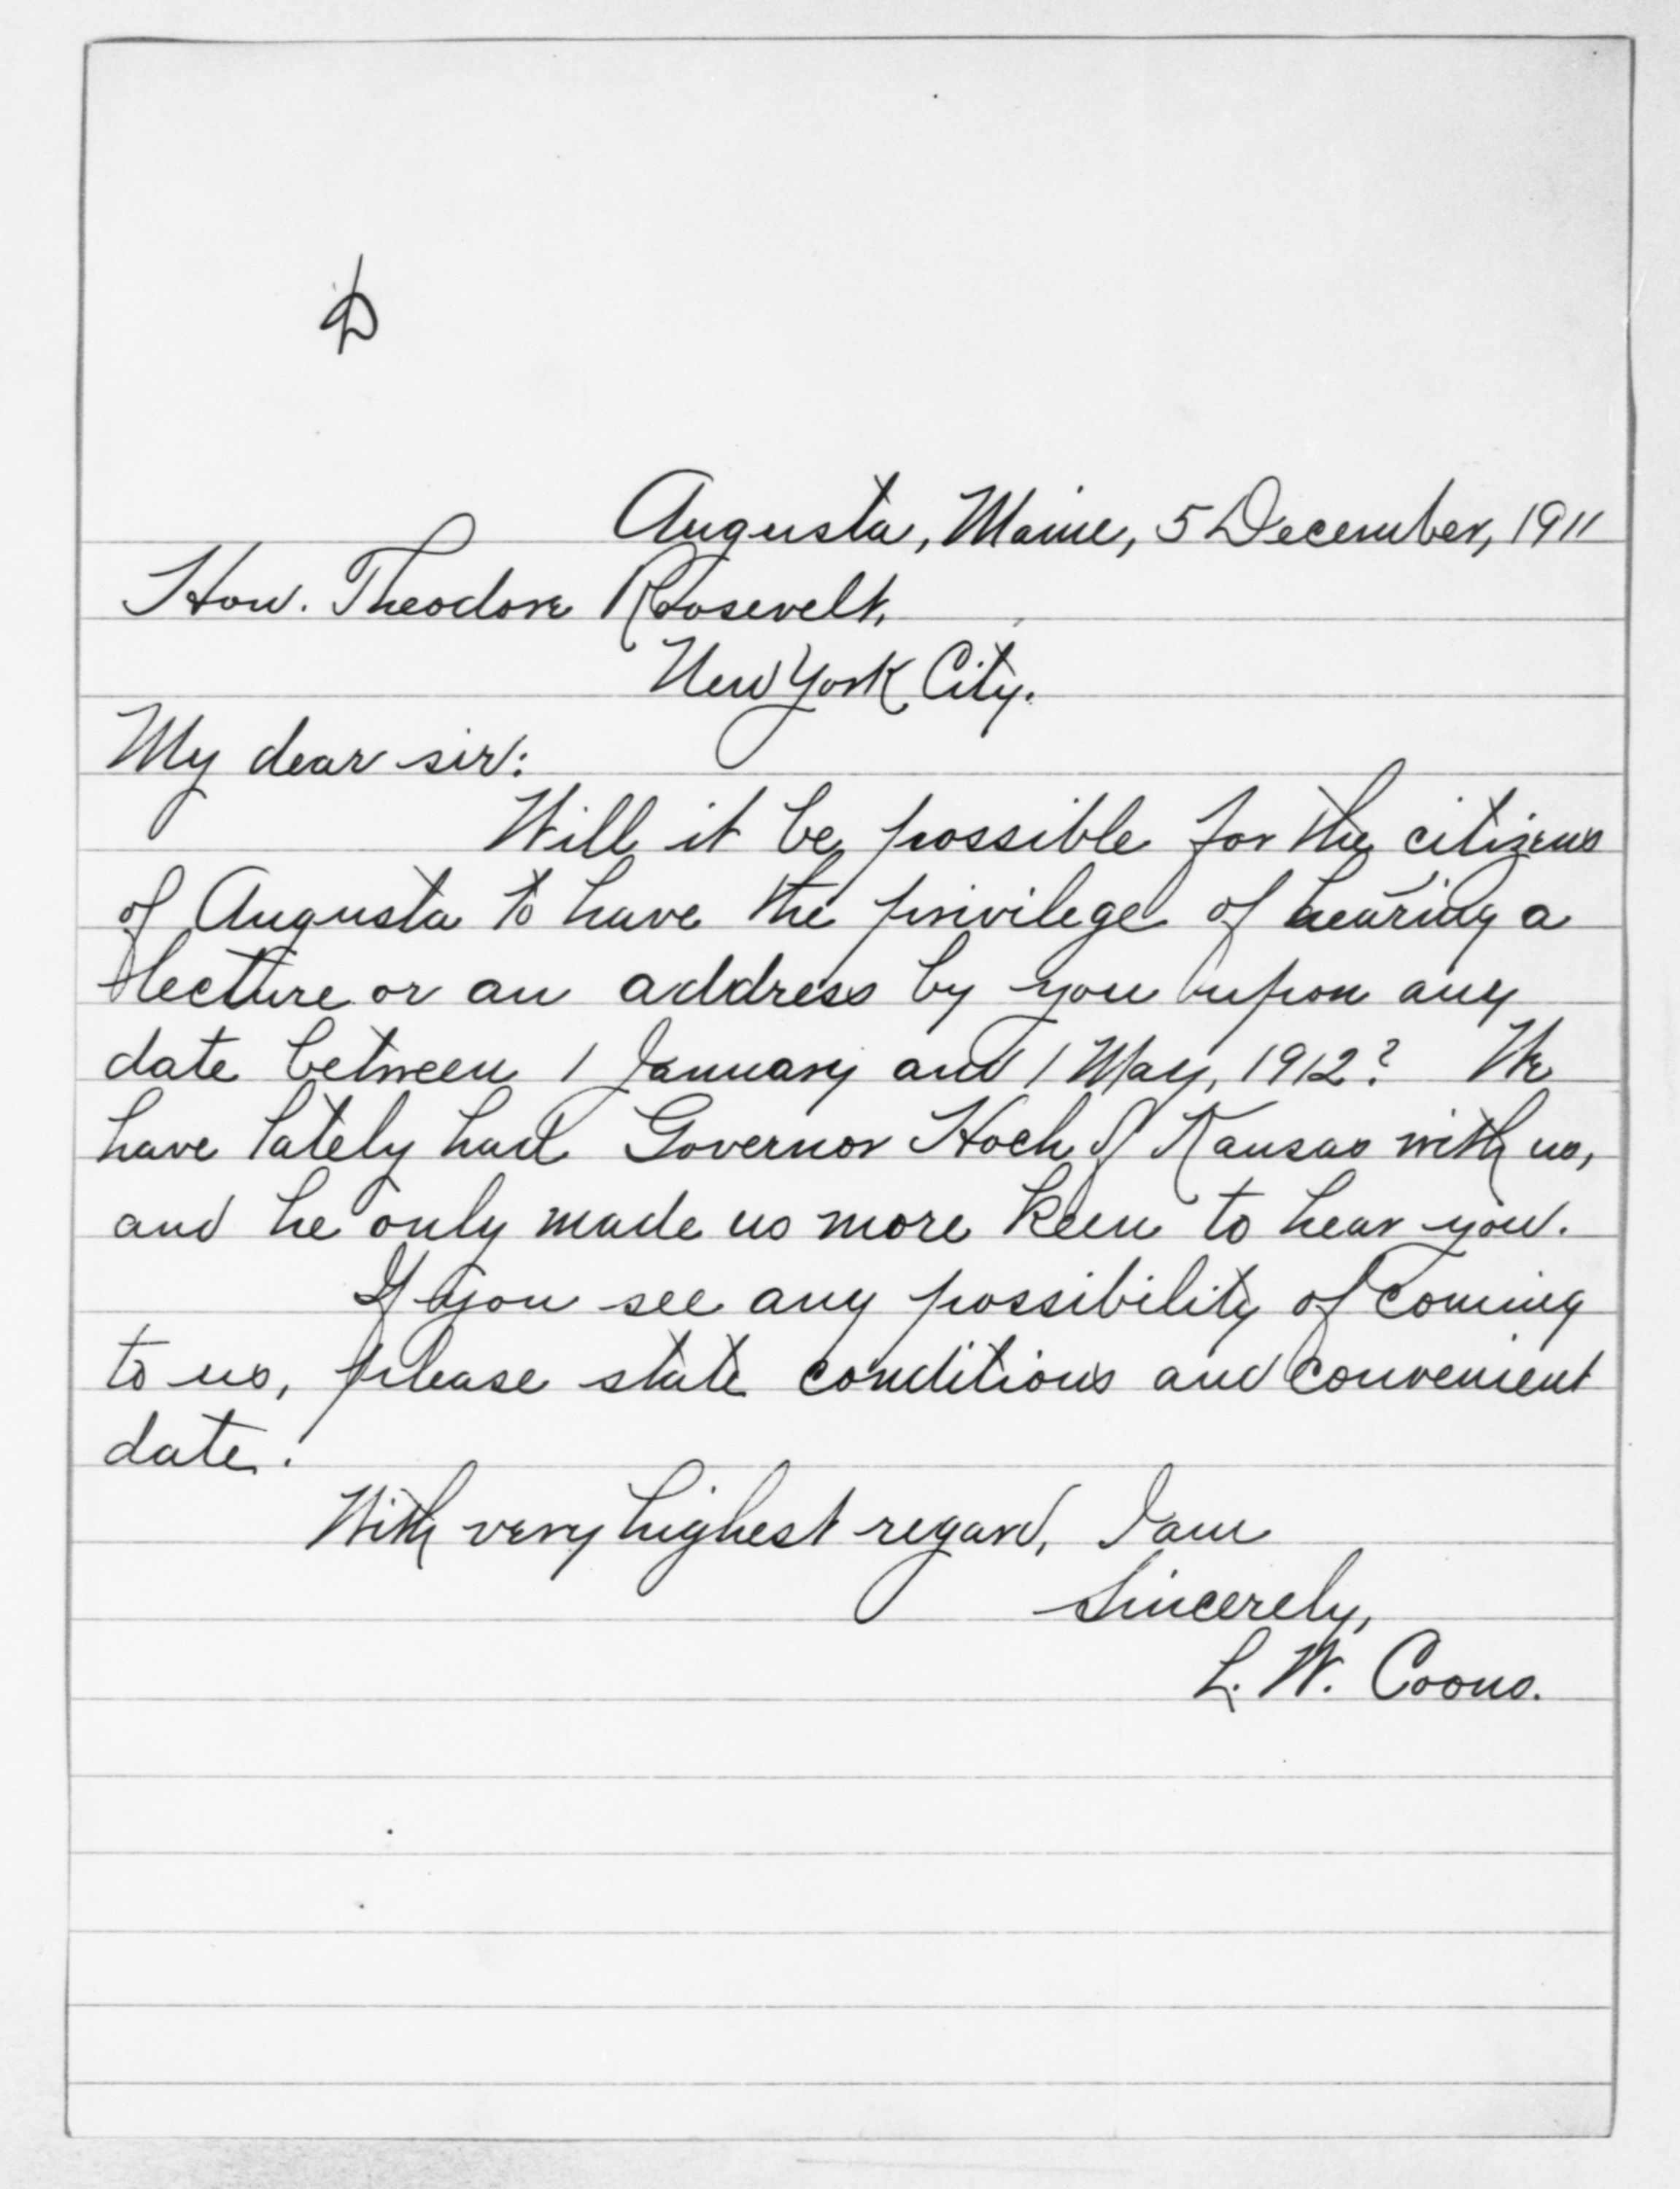 Augusta, Maine, 5 December, 1911
Hon. Theodore Roosevelt,
New York City.
My dear sir:
Will it be possible for the citizens
of Augusta to have the privilege of hearing a
lecture or an address by you upon any
date between 1 January and 1 May, 1912? We
have lately had Governor Hoch of Kansas with us,
and he only made us more keen to hear you.
If you see any possibility of coming
to us, please state conditions and convenient
date.
With very highest regard, I am
Sincerely,
L. W. Coons.